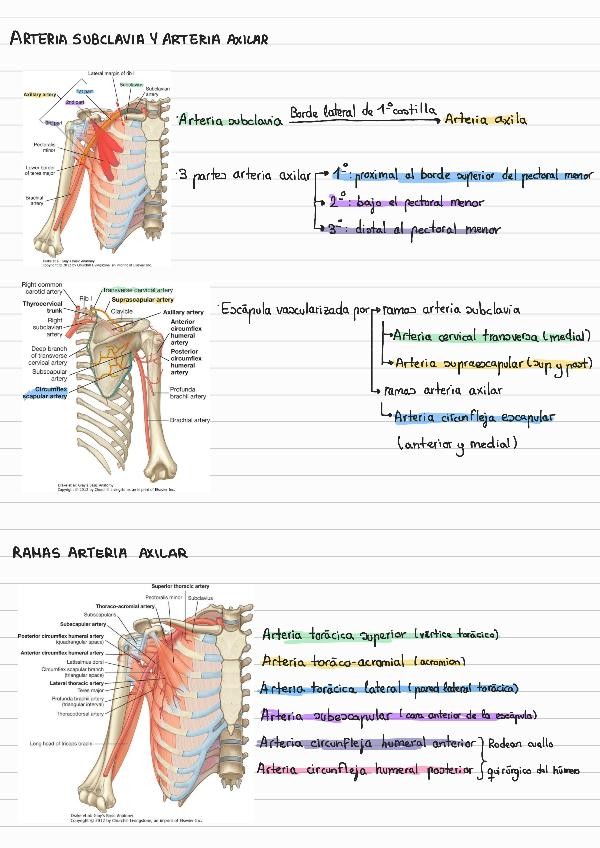 ARTERIA SUBCLAVIA Y ARTERIA AXILAR
Lateral margin of rib I
Axillary artery
1st part
2nd part
3rd part
Subclavius
Subclavian
artery
Pectoralis
minor
Lower border
of teres major
Brachial
artery
Drake et al: Gray's Basic Anatomy
Copyright © 2012 by Churchill Livingstone, an imprint of Elsevier Inc.
Arteria subclavia Borde lateral de 1º costilla Arteria axila
3 partes arteria axilar
1º: proximal al borde superior del pectoral menor
2º: bajo el pectoral menor
3º: distal al pectoral menor
Right common
carotid artery
Thyrocervical
trunk
Rib I
Right
subclavian
artery
Transverse cervical artery
Suprascapular artery
Clavicle
Axillary artery
Anterior
circumflex
humeral
artery
Posterior
circumflex
humeral
artery
Deep branch
of transverse
cervical artery
Subscapular
artery
Circumflex
scapular artery
Profunda
brachii artery
Brachial artery
Drake et al: Gray's Basic Anatomy
Copyright © 2012 by Churchill Livingstone, an imprint of Elsevier Inc.
Escápula vascularizada por
ramas arteria subclavia
Arteria cervical transversa (medial)
Arteria supraescapular (sup y post)
ramas arteria axilar
Arteria circunfleja escapular
(anterior y medial)
RAMAS ARTERIA AXILAR
Superior thoracic artery
Pectoralis minor
Subclavius
Thoraco-acromial artery
Subscapularis
Subscapular artery
Posterior circumflex humeral artery
(quadrangular space)
Anterior circumflex humeral artery
Latissimus dorsi
Circumflex scapular branch
(triangular space)
Lateral thoracic artery
Teres major
Profunda brachii artery
(triangular interval)
Thoracodorsal artery
Long head of triceps brachii
Drake et al: Gray's Basic Anatomy
Copyright © 2012 by Churchill Livingstone, an imprint of Elsevier Inc.
Arteria torácica superior (vértice torácico)
Arteria toráco-acromial (acromion)
Arteria torácica lateral (pared lateral torácica)
Arteria subescapular (cara anterior de la escápula)
Arteria circunfleja humeral anterior
Arteria circunfleja humeral posterior
Rodean cuello
quirúrgico del húmero